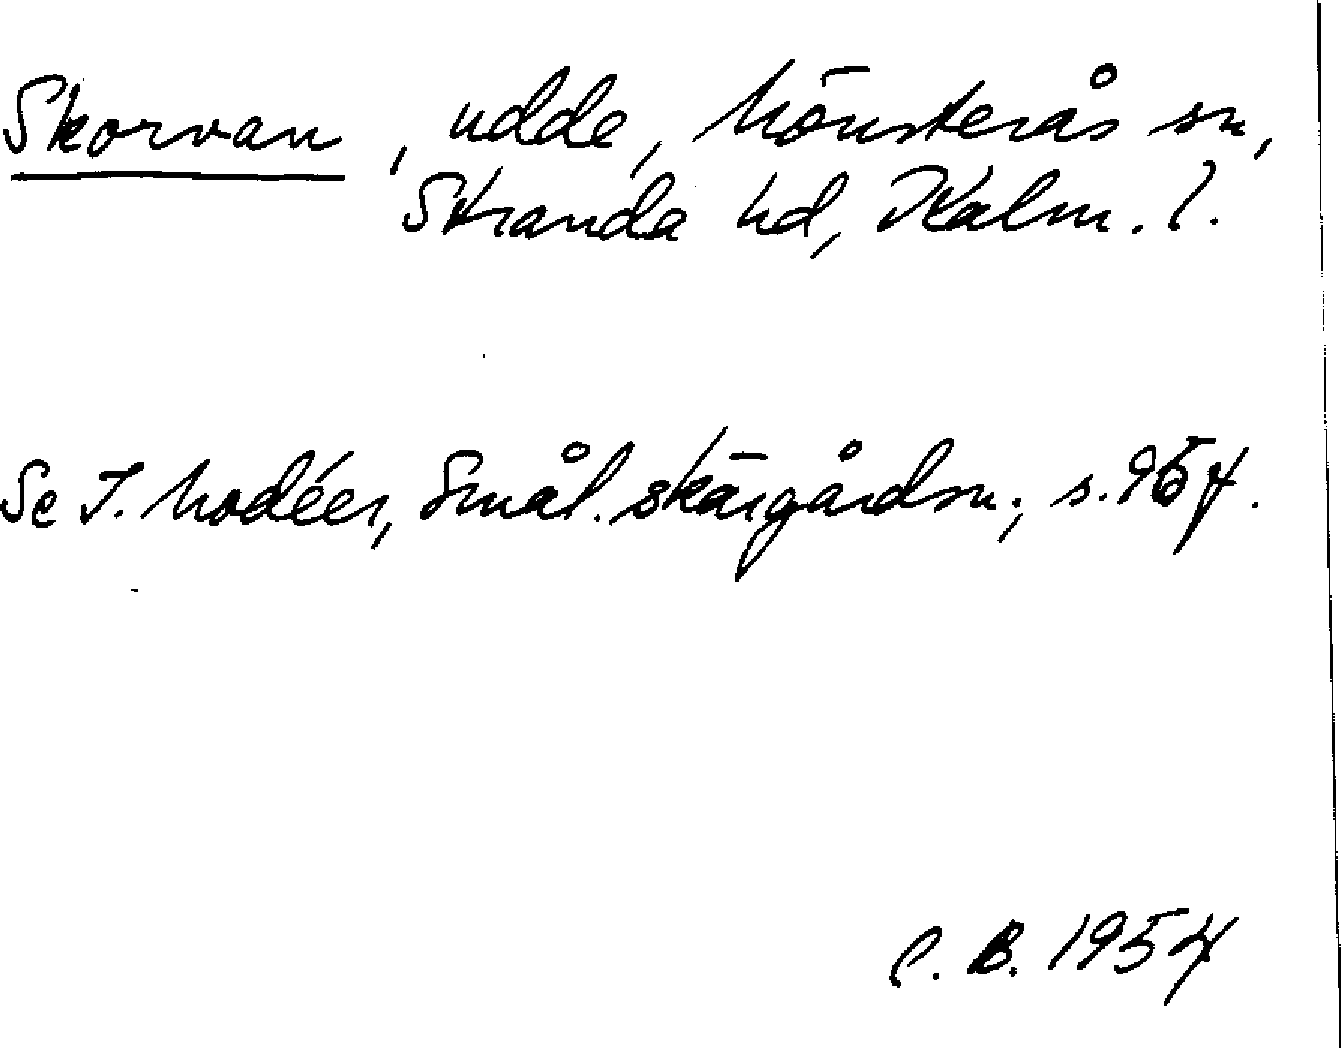 Skorvan, udde, Mönsterås sn,
Stranda hd, Kalm. l.
Se I. Modéer, Smål. skärgårdsn., s.
C. B. 1954